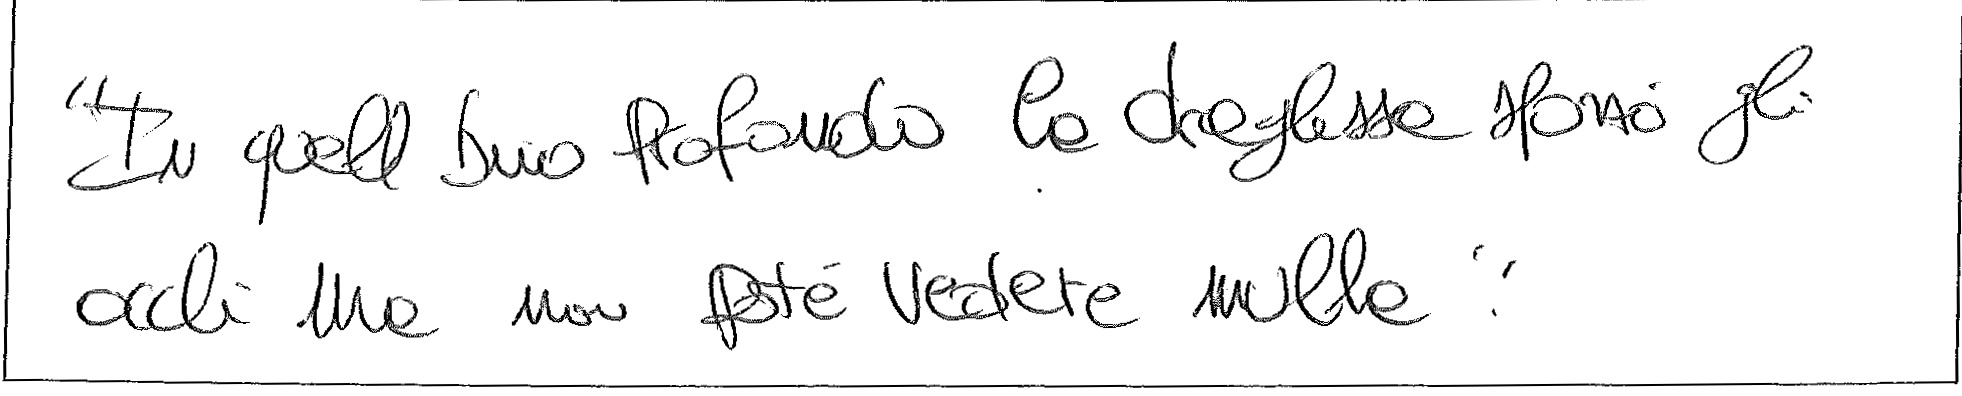 "In quell buio profondo la draghessa sforzò gli
occhi ma non poté vedere nulla".